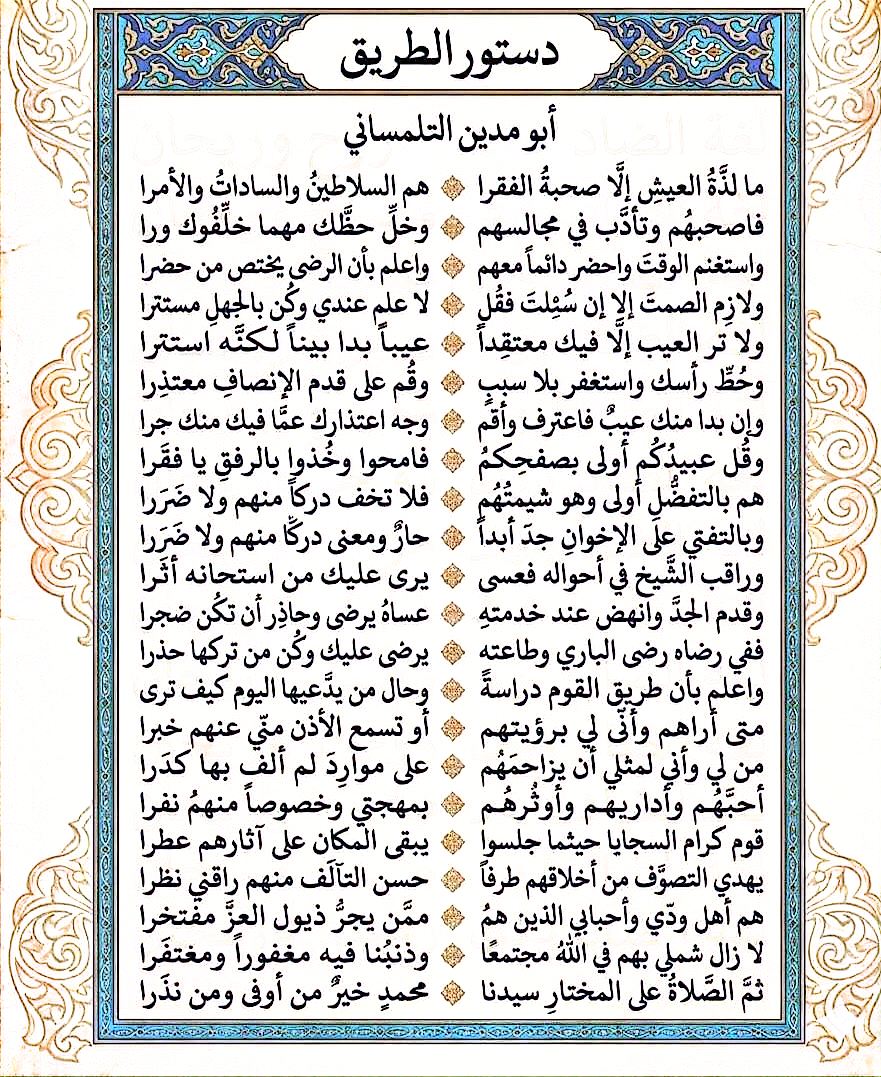 دستور الطريق
أبو مدين التلمساني
ما لذَّةُ العيشِ إلَّا صحبةُ الفقرا هم السلاطينُ والساداتُ والأمرا
فاصحبهُم وتأدَّب في مجالسهم وخلِّ حظَّك مهما خلِّفُوك ورا
واستغنم الوقتَ واحضر دائماً معهم واعلم بأن الرضى يختص من حضرا
ولازِم الصمتَ إلا إن سُئِلتَ فقُل لا علم عندي وكُن بالجهلِ مستترا
ولا تر العيب إلَّا فيك معتقِداً عيباً بدا بيناً لكنَّه استترا
وحُطِّ رأسك واستغفر بلا سببٍ وقُم على قدم الإنصافِ معتذِرا
وإن بدا منك عيبٌ فاعترف وأقم وجه اعتذارك عمَّا فيك منك جرا
وقُل عبيدُكُم أولى بصفحِكمُ فامحوا وخُذوا بالرفقِ يا فقَرا
هم بالتفضُّلِ أولى وهو شيمتُهُم فلا تخف دركاً منهم ولا ضَرَرا
وبالتفتي على الإخوانِ جدَ أبداً حارٌ ومعنى دركًا منهم ولا ضَرَرا
وراقب الشَّيخ في أحواله فعسى يرى عليك من استحانه أثَرا
وقدم الجدَّ وانهض عند خدمتهِ عساهُ يرضى وحاذِر أن تكُن ضجرا
ففي رضاه رضى الباري وطاعته يرضى عليك وكُن من تركها حذرا
واعلم بأن طريق القوم دراسةً وحال من يدَّعيها اليوم كيف ترى
متى أراهم وأنّى لي برؤيتهم أو تسمع الأذن منّي عنهم خبرا
من لي وأني لمثلي أن يزاحمَهُم على موارِدَ لم ألف بها كدَرا
أحبَّهُم وأداريهم وأوثُرهُم بمهجتي وخصوصاً منهمُ نفرا
قوم كرام السجايا حيثما جلسوا يبقى المكان على آثارهم عطرا
يهدي التصوَّف من أخلاقهم طرفاً حسن التآلَف منهم راقني نظرا
هم أهل ودّي وأحبابي الذين همُ ممَّن يجرُّ ذيول العزَّ مفتخرا
لا زال شملي بهم في اللهُ مجتمعًا وذنبُنا فيه مغفوراً ومغتفَرا
ثمَّ الصَّلاةُ على المختارِ سيدنا محمدٍ خيرٌ من أوفى ومن نذَرا